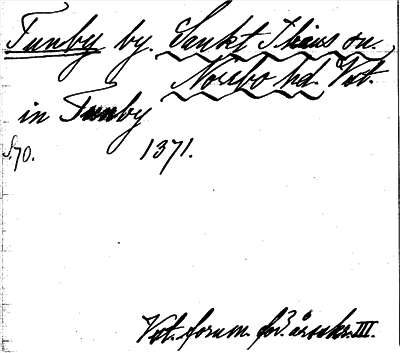 Tunby by. Sankt Ilians sn.
Norrbo hd. Vst.
in Tunby
S. 70. 1371.
Vst. fornm. för. årsskr. III.